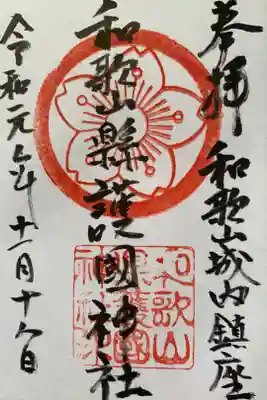 奉拝 和歌山城内鎮座
和歌山縣護國神社
令和元年十一月
和歌山
縣護國